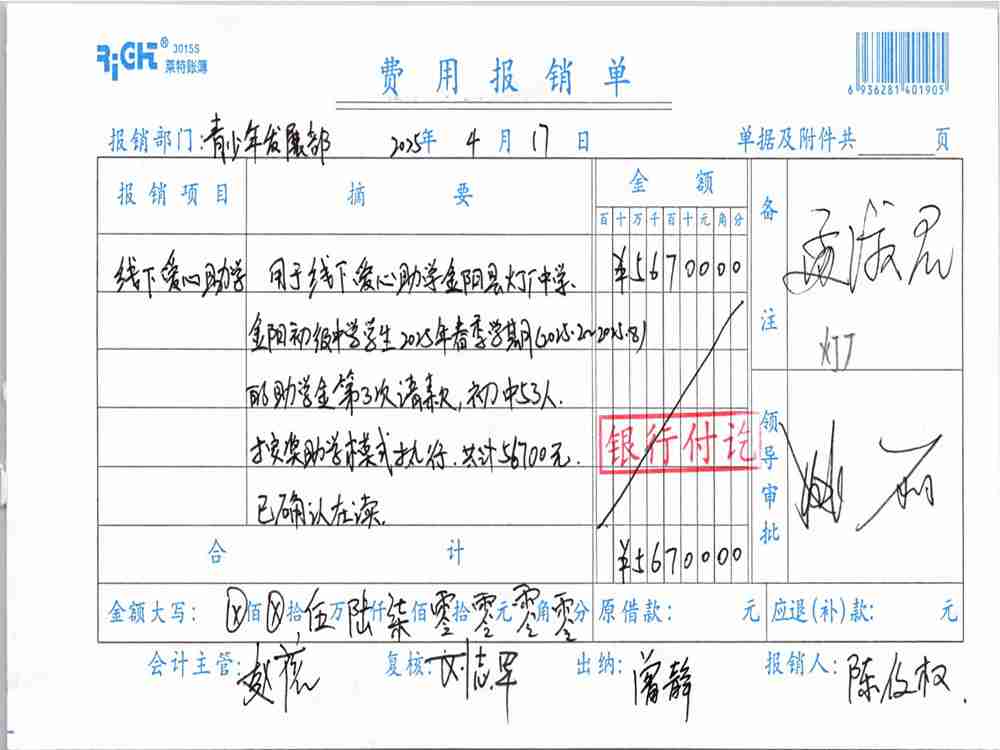 RiGHT® 3015S
莱特账簿
费用报销单
6 936281 401905
报销部门:青少年发展部 2025年 4月17日 单据及附件共 页
报销项目 摘要 金额 备注
百十万千百十元角分
线下爱心助学 用于线下爱心助学金阳县灯厂中学、 ¥5670000
金阳初级中学学生2025年春季学期(2025.2~2025.8)
的助学金第3次请款,初中53人.
按奖助学模式执行.共计56700元.
已确认在读.
银行付讫
领导审批
合计 ¥5670000
金额大写: ⓧ佰ⓧ拾伍万陆仟柒佰零拾零元零角零分 原借款: 元 应退(补)款: 元
会计主管: 复核:刘志军 出纳:曾静 报销人:陈俊权.